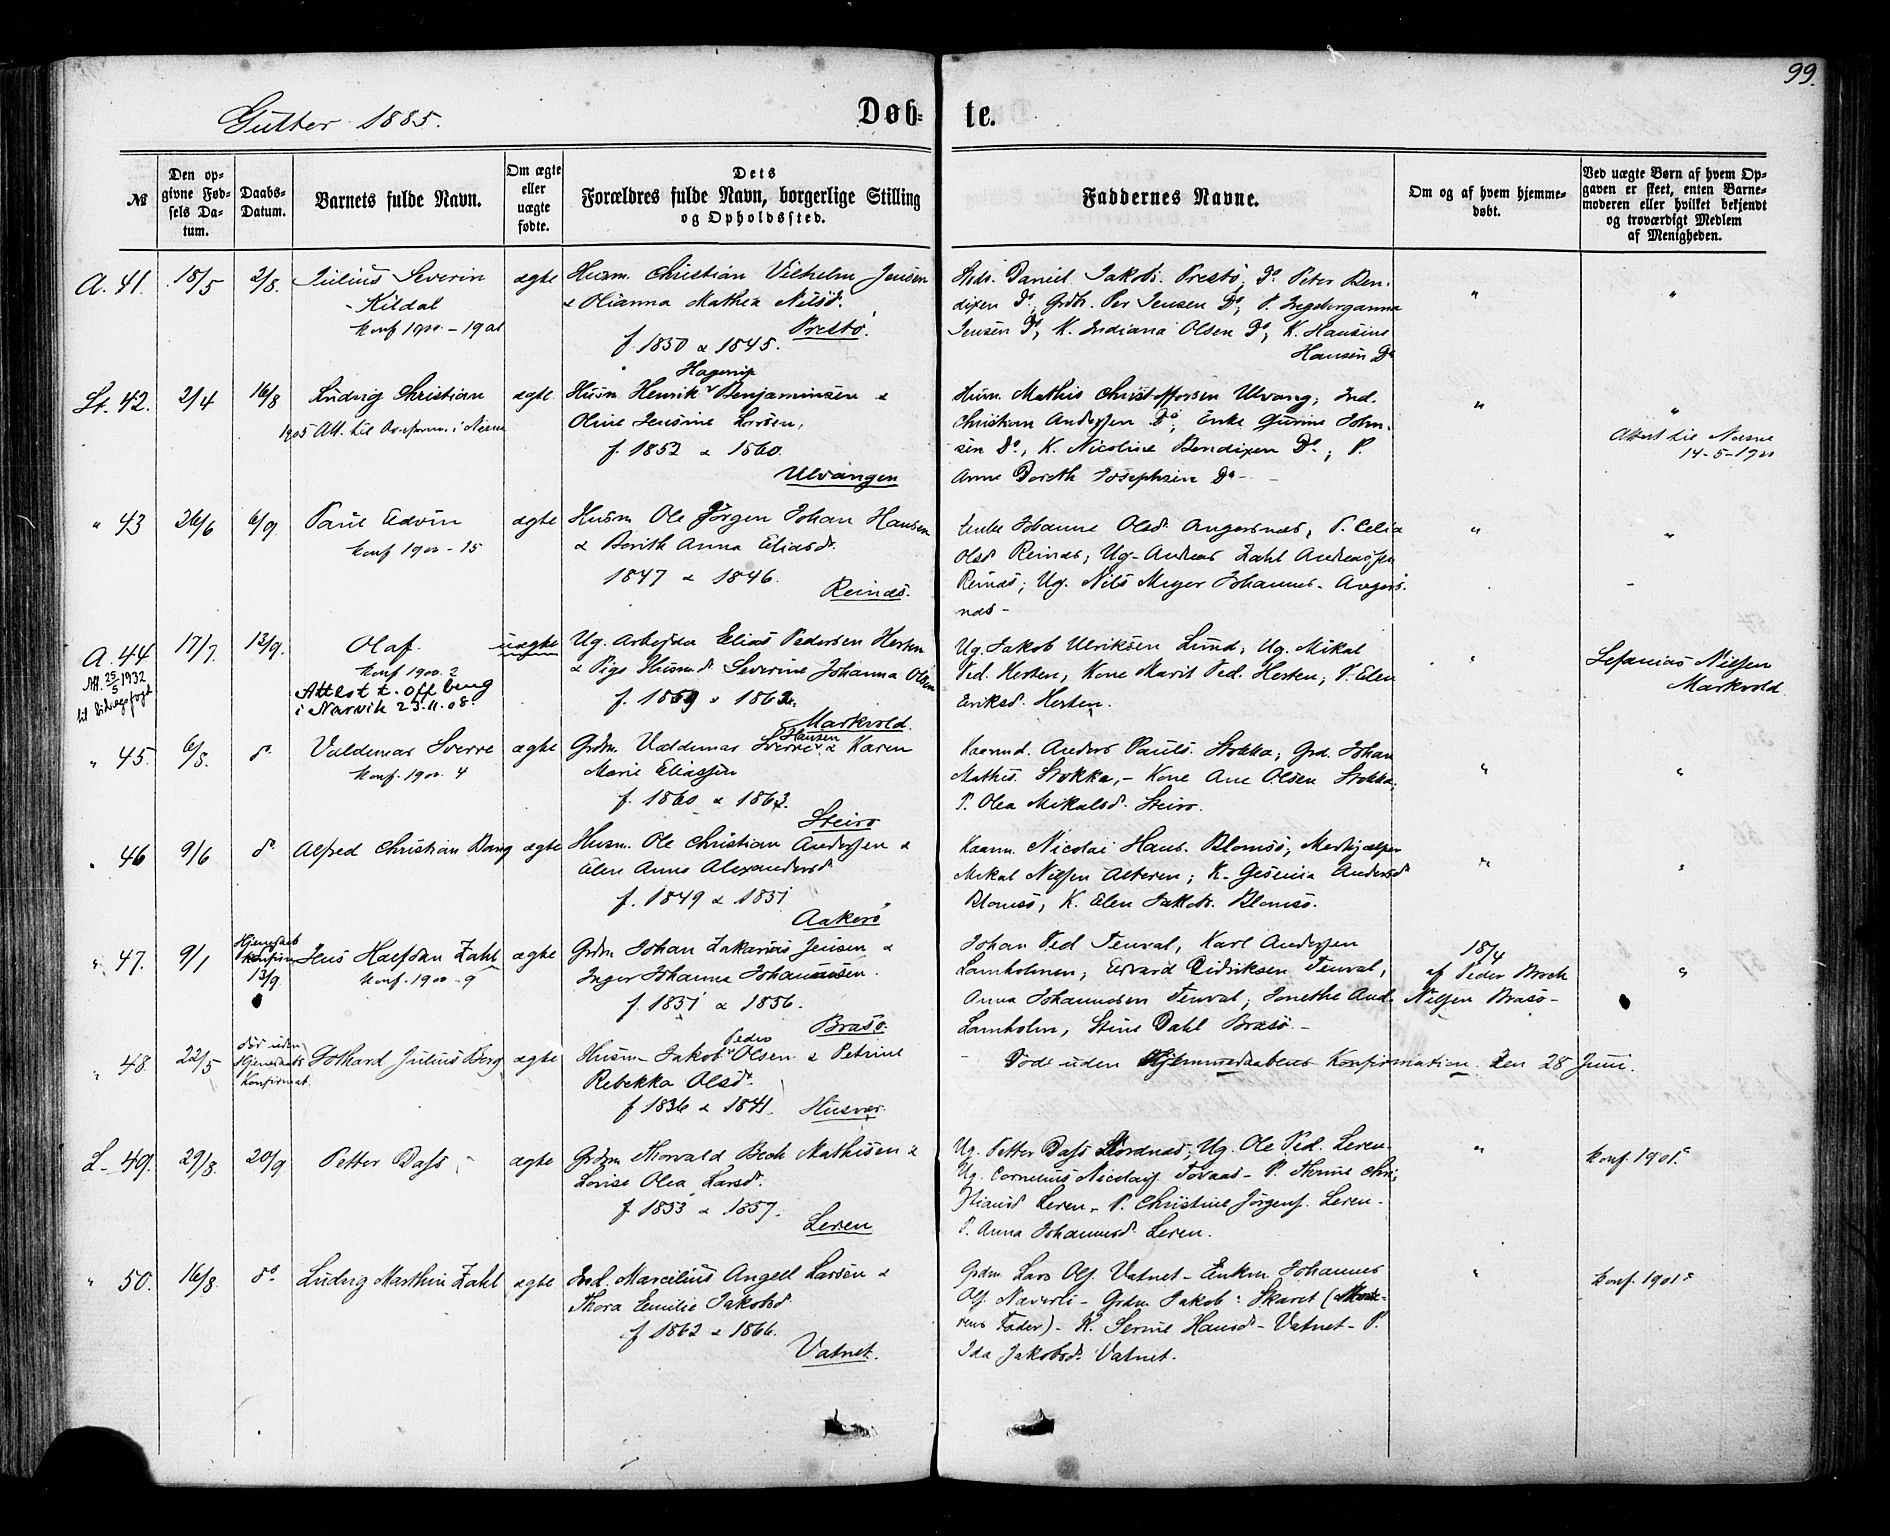 99.
Gutter 1885.
Døb- te.
№
Den opgivne Fødsels Datum.
Daabs-Datum.
Barnets fulde Navn.
Om ægte eller uægte fødte.
Dets Forældres fulde Navn, borgerlige Stilling og Opholdssted.
Faddernes Navne.
Om og af hvem hjemmedøbt.
Ved uægte Børn af hvem Opgaven er skeet, enten Barnemoderen eller hvilket bekjendt og troværdigt Medlem af Menigheden.
A. 41. 18/5 2/8. Julius Severin
Kildal
Konf 1900 - 1901
ægte
Husm. Christian Vilhelm Jensen
& Olianna Mathea Nilsd.
f. 1850 & 1845. Prestø.
Daniel Jakobs. Prestø, Do Peter Ben-
dixen Do, Grdb. Per Jensen Do, P. Ingeborganna
Jensen Do, K. Indiana Olsen Do, K. Hansine
Hansen Do
" "
St. 42. 2/4 16/8 Ludvig Christian
1905 Att. til Konform. i Nesne
ægte
Hagerup
Husm Henrik Benjaminsen &
Oline Jensine Larsen,
f. 1852 & 1860.
Ulvangen
Husm. Mathis Christoffersen Ulvang, Ind.
Christian Anderssen Do, Enke Gurine John-
sen Do, K. Nicoline Bendixen Do, P.
Anne Doreth Josephsen Do -
" "
Attest til Nesne
14-5-1900
" 43 26/6 6/9. Paul Edvin
Konf 1900 - 15
ægte
Husm Ole Jørgen Johan Hansen
& Berith Anna Eliasd.
1847 & 1846.
Reinæs.
Enke Johanne Olsd. Angersnæs, P. Celia
Olsd Reinæs, Ug. Andreas Zahl Andreassen
Reinæs; Ug. Nils Meyer Johannes. Angers-
næs -
" "
A. 44 17/7. 13/9. Olaf
Att. 25/5 1932
til bidragsfogd
Konf 1900. 2
Attest t. off brug
i Narvik 23.11.08.
uægte
Ug. Arbejder Elias Pedersen Hesten
& Pige Husmd Severine Johanna Olsen
f. 1859 & 1862.
Markvold.
Ug. Jakob Ulriksen Lund, Ug. Mikal
Ped. Hesten, Kone Marit Ped. Hesten, P. Elen
Eriksd. Hesten.
"
Sefanias Nilsen
Markvold
" 45. 6/8. do Valdemar Sverre
Konf. 1900. 4
ægte
Hansen
Grdm. Valdemar Sverre & Karen
Marie Eliassen
f. 1860 & 1862.
Steiro
Kaarmd. Anders Pauls. Stokka, Grd. Johan
Mathis. Stokka, - Kone Ane Olsen Stokka,
P. Olea Mikalsd. Steiro.
" "
" 46 9/6 do Alfred Christian Bang
ægte
Husm. Ole Christian Anderssen &
Elen Anna Alexandersd
f. 1849 & 1851
Aakerø
Kaarm. Nicolai Hans. Blomsø, Medhjælper
Mikal Nilsen Alteren, K. Gesenia Andersd
Blomsø, K. Elen Jakobs. Blomsø.
" "
" 47. 9/1 Hjemdaab
Konfirm
13/9.
Jens Halfdan Zahl
Konf. 1900 - 9
ægte
Grdm Johan Zakarias Jensen &
Inger Johanna Johannesen.
f. 1851 & 1856.
Brasø.
Johan Ped Tenval, Karl Anderssen
Lamholmen, Edvard Didriksen Tenval,
Anna Johannesen Tenval, Jonethe And.
Lamholm, Stine Dahl Brasø. -
18/4
af Peder Broch
Nilsen Brasø -
"
" 48. 22/5 død uden
Hjemdaabs
Konfirmat.
Gothard Julius Berg
ægte
Peder
Husm Jakob Olsen & Petrine
Rebekka Olsd.
f 1836 & 1841. Husvær.
- Døde uden Hjemmedaabens Konfirmation. Den 28 Juni.
L. 49. 29/3. 20/9 Petter Dass
ægte
Grdm Thorvald Bech Mathisen &
Lovise Olea Larsd.
f. 1853 & 1857.
Leren
Ug. Petter Dass Nordnæs, Ug. Ole Ped. Leren.
Ug. Cornelius Nicolays. Tovaas - P. Thrine Chri-
stiansd Leren - P. Christine Jørgens. Leren -
P. Anna Johannesd. Leren.
"
Konf. 1901.
" 50. 16/8. do Ludvig Marthin Zahl
ægte
Ind. Marcelius Angell Larsen &
Thora Emilie Jakobsd.
f 1862 & 1866.
Vatnet.
Grdm. Lars Ols. Vatnet - Enkm Johannes
Ols. Naverli - Grdm Jakob Skaret (Mode-
rens Fader) - K. Serine Hansd - Vatnet - P.
Ida Jakobsd. Vatnet.
"
Konf. 1901.